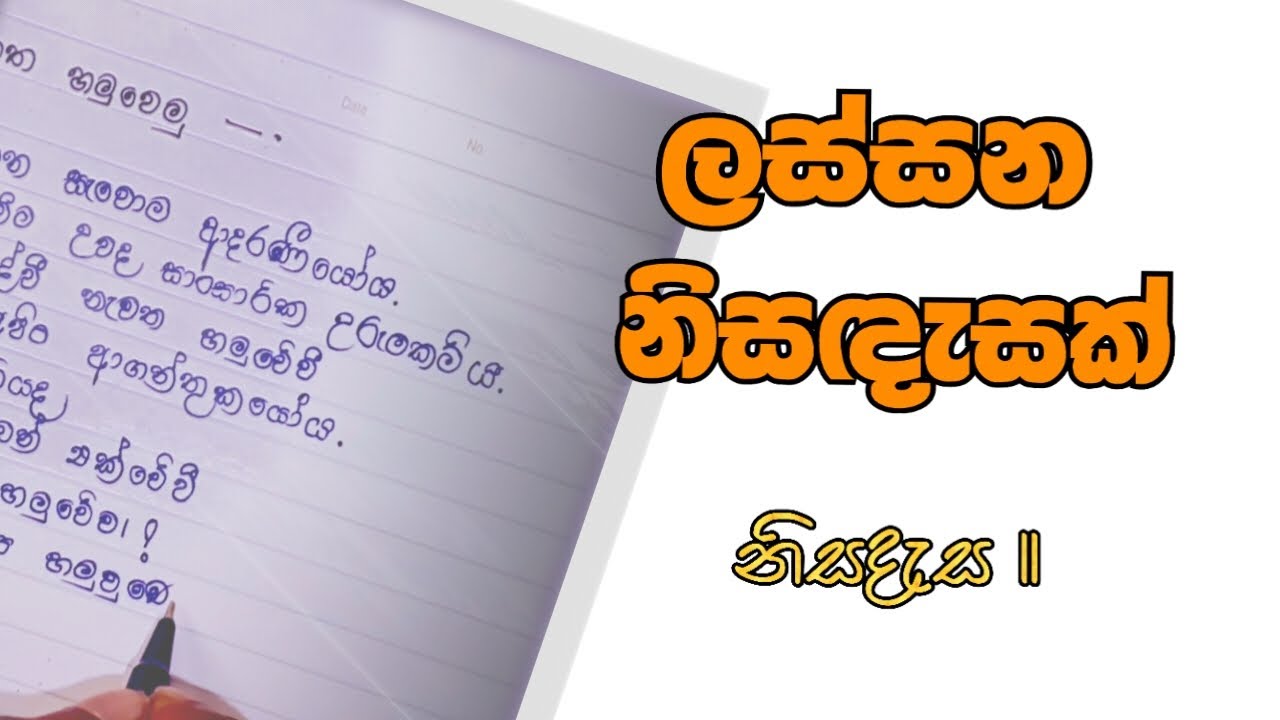 හමුවෙමු —.
Date
No
සැවොම ආදරණීයෝය.
උවද සාංසාරික උරුමකම්ය.
නැවත හමුවේවී
ආගන්තුකයෝය.
යක්වේවී
හමුවේවා!
හමුවුවෙ
ලස්සන
නිසඳැසක්
නිසදැස ॥